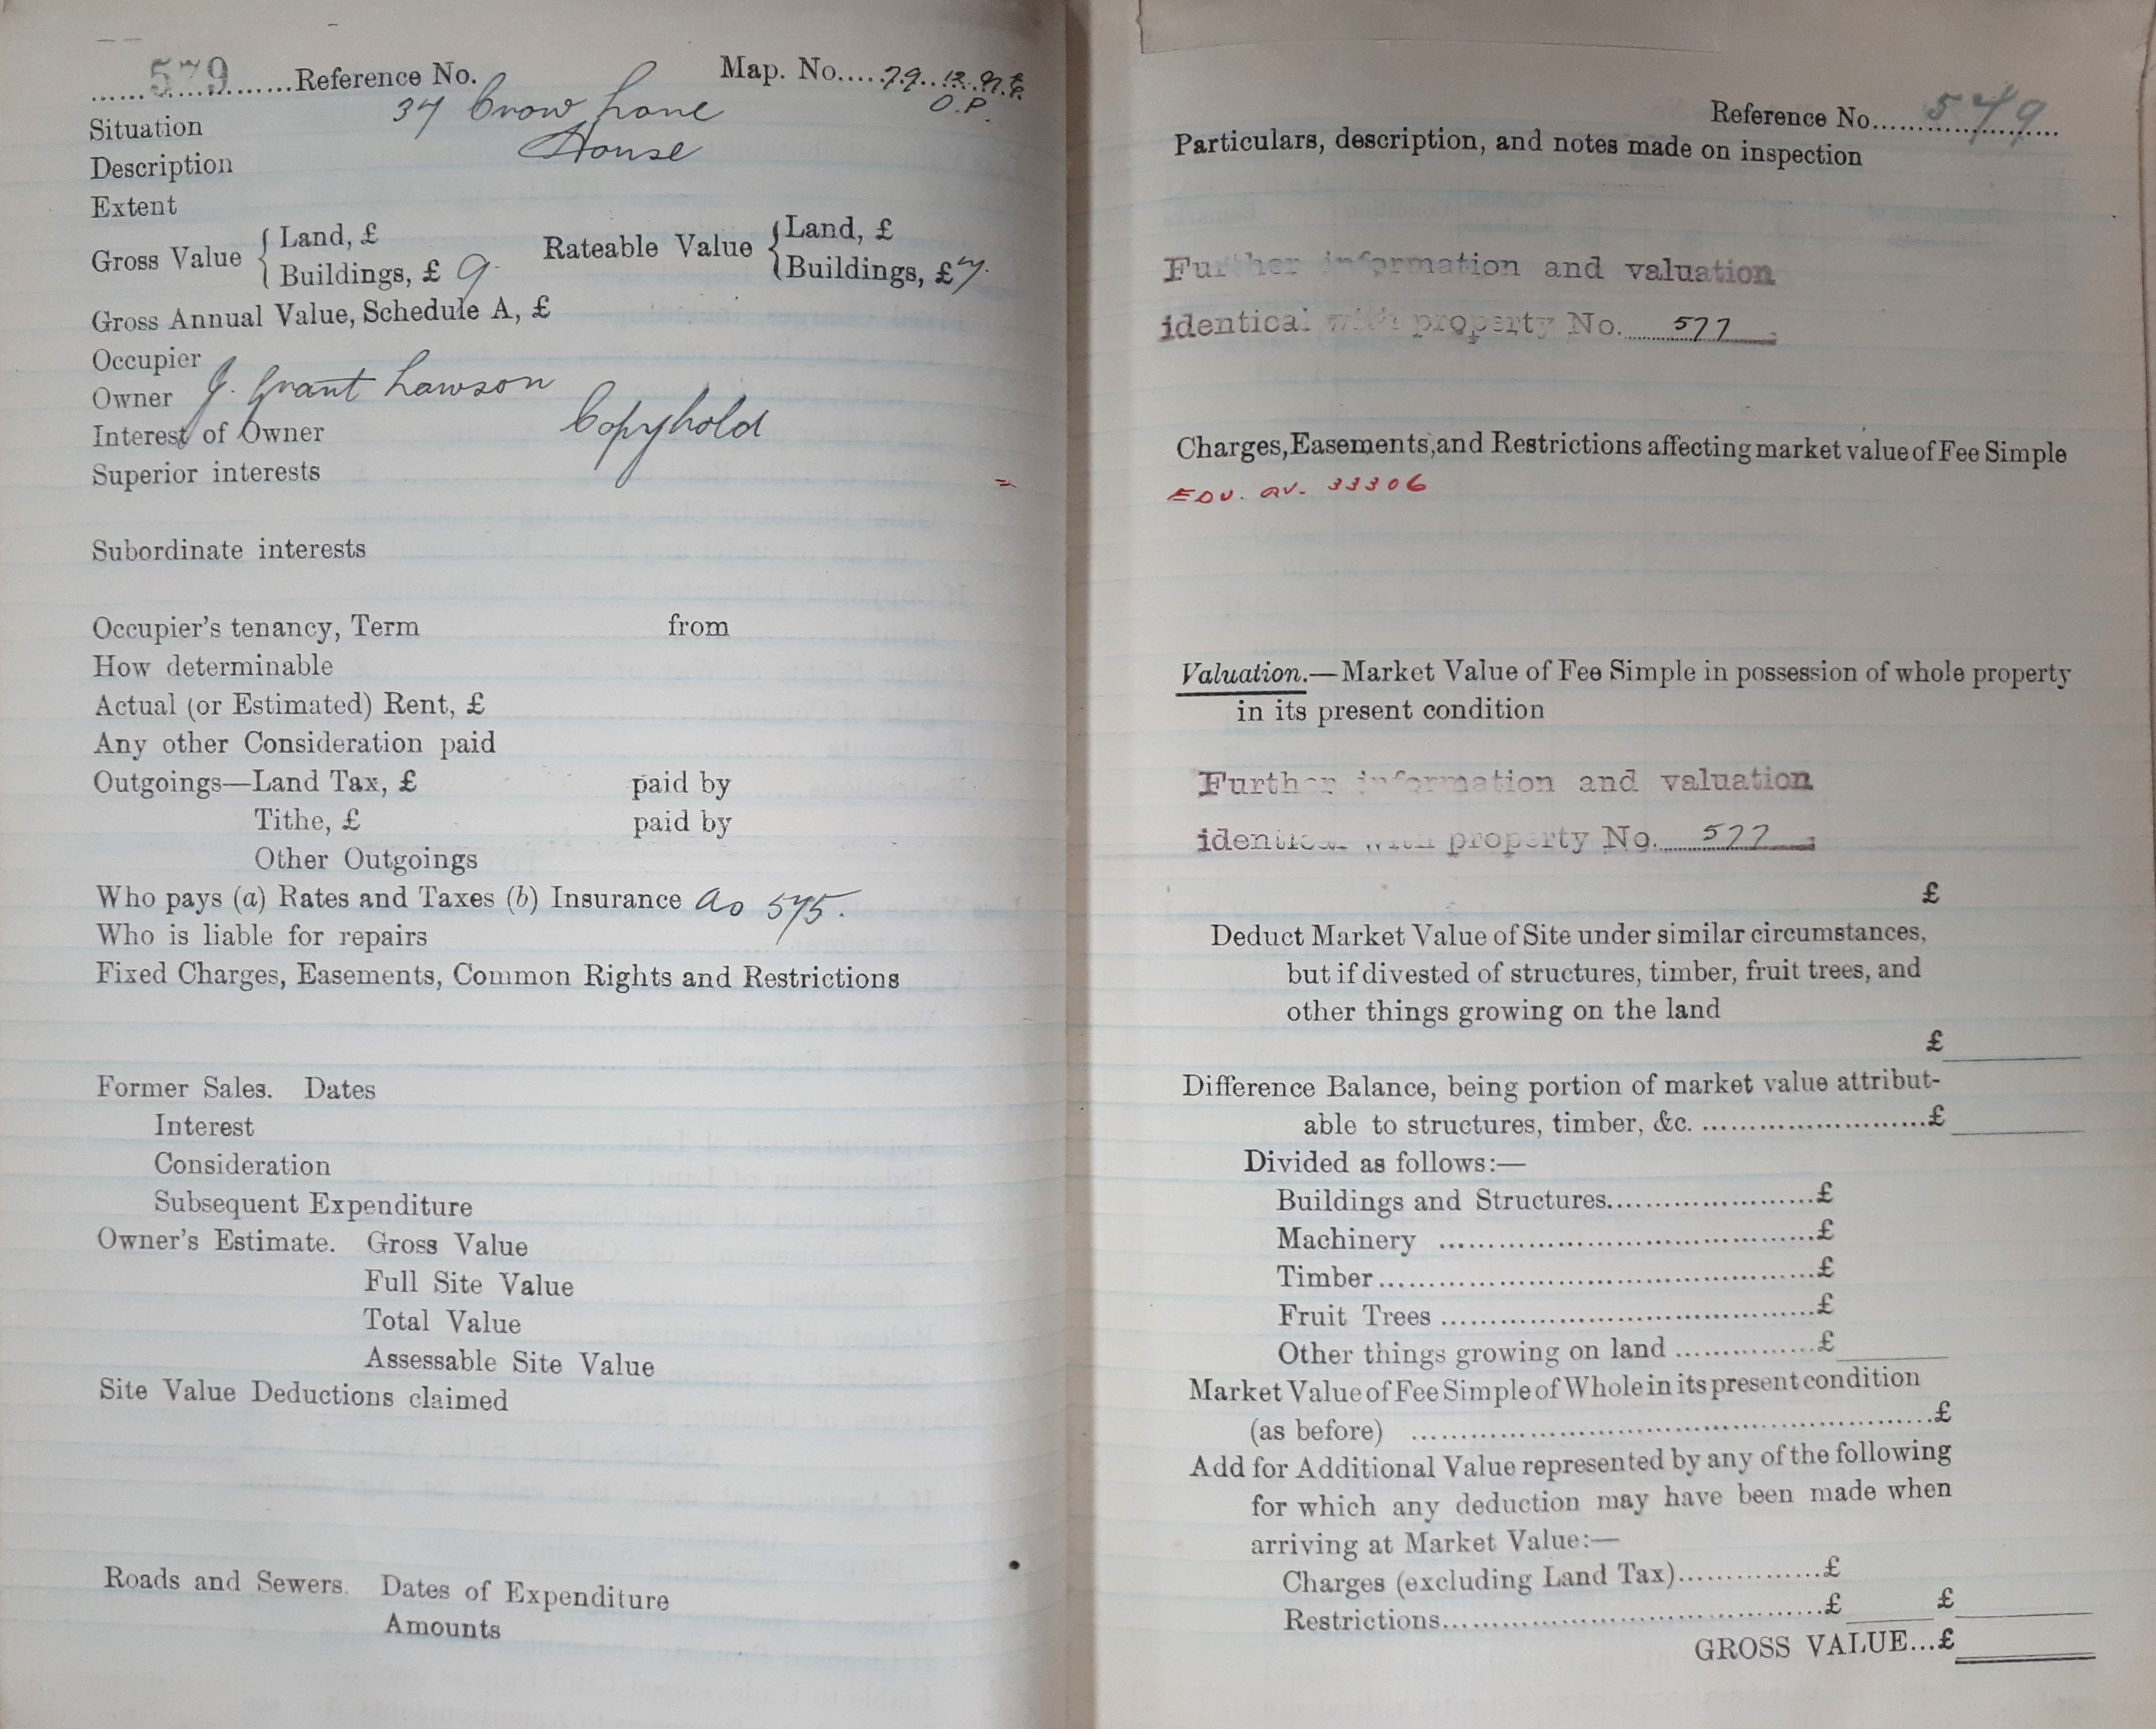 ......579.........Reference No. Map. No.....79..12. N.E.
O.P.
Situation 37 Crow Lane
Description House
Extent
Gross Value { Land, £ Rateable Value { Land, £
Buildings, £ 9. Buildings, £ 7.
Gross Annual Value, Schedule A, £
Occupier
Owner J. Grant Lawson
Interest of Owner Copyhold
Superior interests
Subordinate interests
Occupier's tenancy, Term from
How determinable
Actual (or Estimated) Rent, £
Any other Consideration paid
Outgoings—Land Tax, £ paid by
Tithe, £ paid by
Other Outgoings
Who pays (a) Rates and Taxes (b) Insurance as 575.
Who is liable for repairs
Fixed Charges, Easements, Common Rights and Restrictions
Former Sales. Dates
Interest
Consideration
Subsequent Expenditure
Owner's Estimate. Gross Value
Full Site Value
Total Value
Assessable Site Value
Site Value Deductions claimed
Roads and Sewers. Dates of Expenditure
Amounts
Reference No.....579.....
Particulars, description, and notes made on inspection
Further information and valuation
identical with property No. 577
Charges, Easements, and Restrictions affecting market value of Fee Simple
EDV. 33306
Valuation.—Market Value of Fee Simple in possession of whole property
in its present condition
Further information and valuation
identical with property No. 577
£
Deduct Market Value of Site under similar circumstances,
but if divested of structures, timber, fruit trees, and
other things growing on the land
£
Difference Balance, being portion of market value attribut-
able to structures, timber, &c. ..........................£
Divided as follows:—
Buildings and Structures.......................£
Machinery .......................................£
Timber............................................£
Fruit Trees ......................................£
Other things growing on land ..............£
Market Value of Fee Simple of Whole in its present condition
(as before) .....................................................£
Add for Additional Value represented by any of the following
for which any deduction may have been made when
arriving at Market Value:—
Charges (excluding Land Tax)...............£
Restrictions.......................................£ £
GROSS VALUE...£